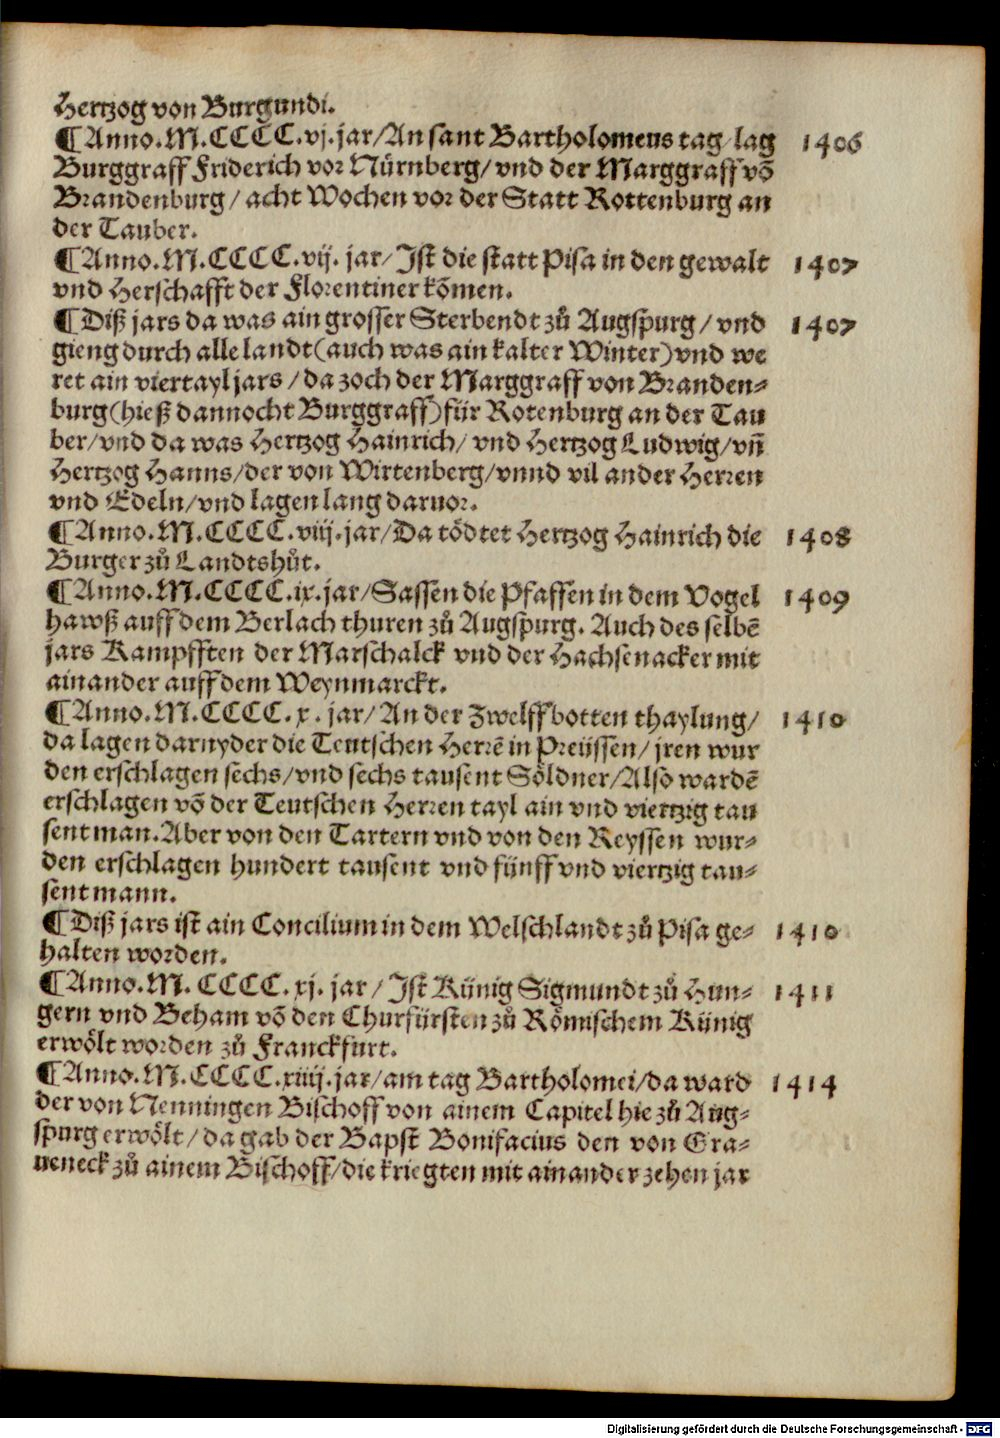 Hertzog von Burgundi.
¶Anno.M.CCCC.vj.jar/An sant Bartholomeus tag/lag 1406
Burggraff Friderich vor Nürnberg/vnd der Marggraff võ
Brandenburg/acht Wochen vor der Statt Rottenburg an
der Tauber.
¶Anno.M.CCCC.vij.jar/Ist die statt Pisa in den gewalt 1407
vnd Herschafft der Florentiner kõmen.
¶Diß jars da was ain grosser Sterbendt zů Augspurg/vnd 1407
gieng durch alle landt(auch was ain kalter Winter)vnd we
ret ain viertayl jars/da zoch der Marggraff von Branden⸗
burg(hieß dannocht Burggraff)für Rotenburg an der Tau
ber/vnd da was Hertzog Hainrich/vnd Hertzog Ludwig/vñ
Hertzog Hanns/der von Wirtenberg/vnnd vil ander Herren
vnd Edeln/vnd lagen lang daruor.
¶Anno.M.CCCC.viij.jar/Da tödtet Hertzog Hainrich die 1408
Burger zů Landtshůt.
¶Anno.M.CCCC.ix.jar/Sassen die Pfaffen in dem Vogel 1409
hawß auff dem Berlach thuren zů Augspurg. Auch des selbẽ
jars Kampfften der Marschalck vnd der Hachsenacker mit
ainander auff dem Weynmarckt.
¶Anno.M.CCCC.x.jar/An der Zwelffbotten thaylung/ 1410
da lagen darnyder die Teutschen Herrẽ in Preüssen/jren wur
den erschlagen sechs/vnd sechs tausent Söldner/Also wardẽ
erschlagen võ der Teutschen Herren tayl ain vnd viertzig tau
sent man.Aber von den Tartern vnd von den Reyssen wur⸗
den erschlagen hundert tausent vnd fünff vnd viertzig tau⸗
sent mann.
¶Diß jars ist ain Concilium in dem Welschlandt zů Pisa ge⸗ 1410
halten worden.
¶Anno.M.CCCC.xj.jar/Ist Künig Sigmundt zů Hun⸗ 1411
gern vnd Beham võ den Churfürsten zů Römischem Künig
erwölt worden zů Franckfurt.
¶Anno.M.CCCC.xiiij.jar/am tag Bartholomei/da ward 1414
der von Nenningen Bischoff von ainem Capitel hie zů Aug⸗
spurg erwölt/da gab der Bapst Bonifacius den von Gra⸗
ueneck zů ainem Bischoff/die kriegten mit ainander zehen jar
Digitalisierung gefördert durch die Deutsche Forschungsgemeinschaft - DFG